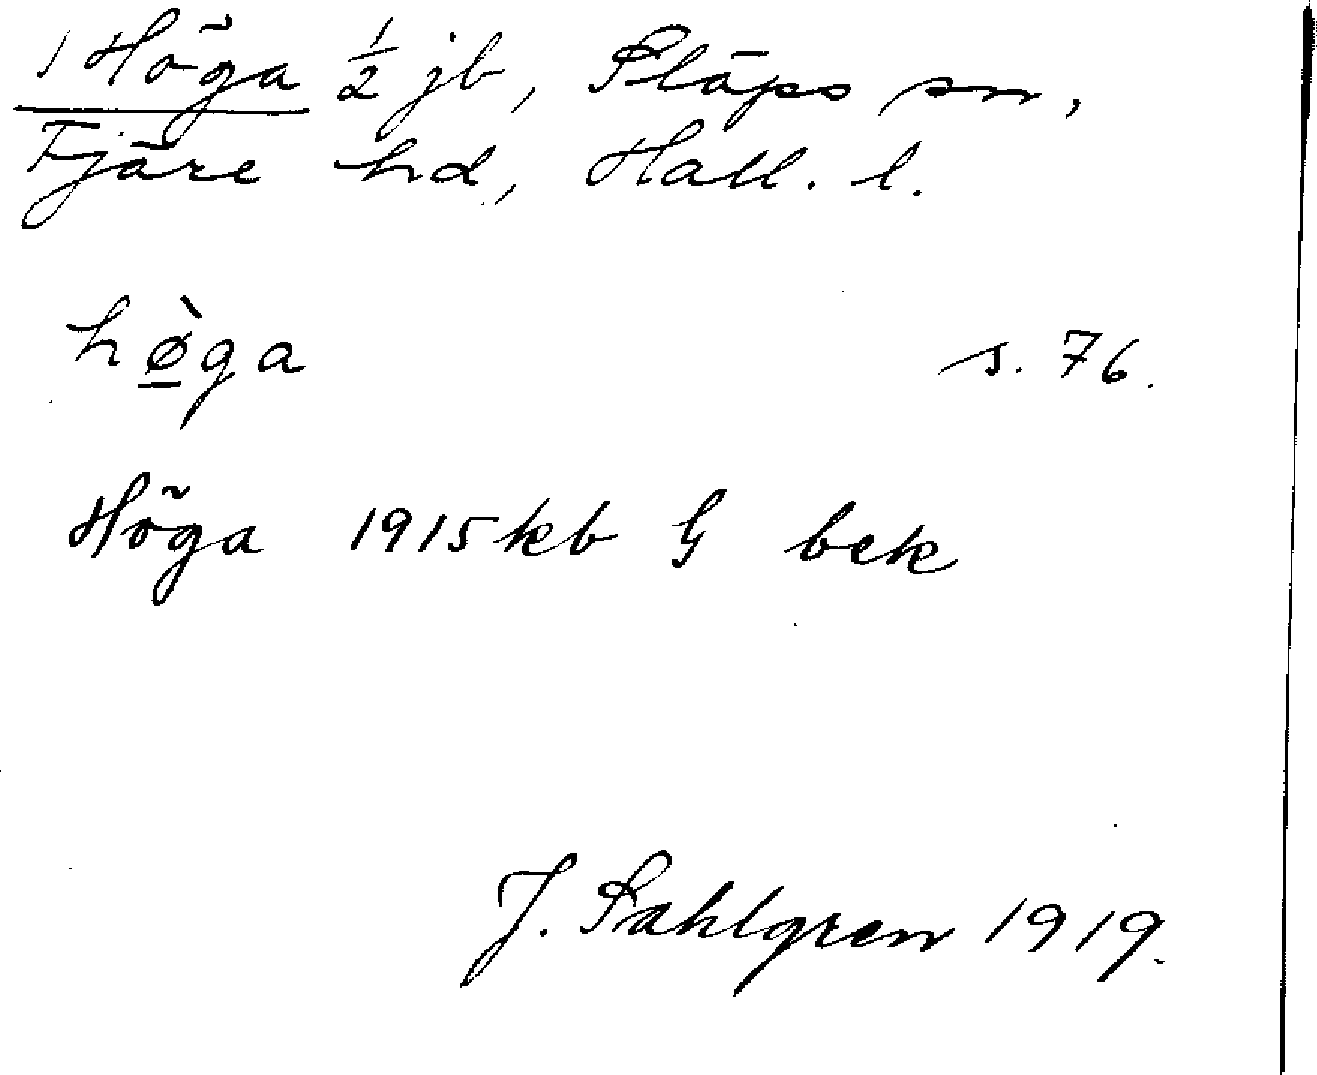 1 Höga 1/2 jb, Släps sn,
Fjäre hd, Hall. l.
hø̲̀ga s. 76.
Höga 1915 kb G bek
J. Sahlgren 1919.